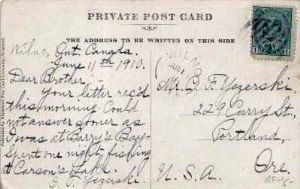 PRIVATE POST CARD
THE ADDRESS TO BE WRITTEN ON THIS SIDE
Wilno, Ont. Canada.
June 11th 1910.
Dear Brother -
Your letter rec'd
this morning. Could
not answer sooner as
I was at Barry's Bay
Spent one night fishing
at Carson's Lake.
Yezerski
Mr. B. F. Yezerski
229 Curry St.,
Portland,
Ore.
U. S. A.